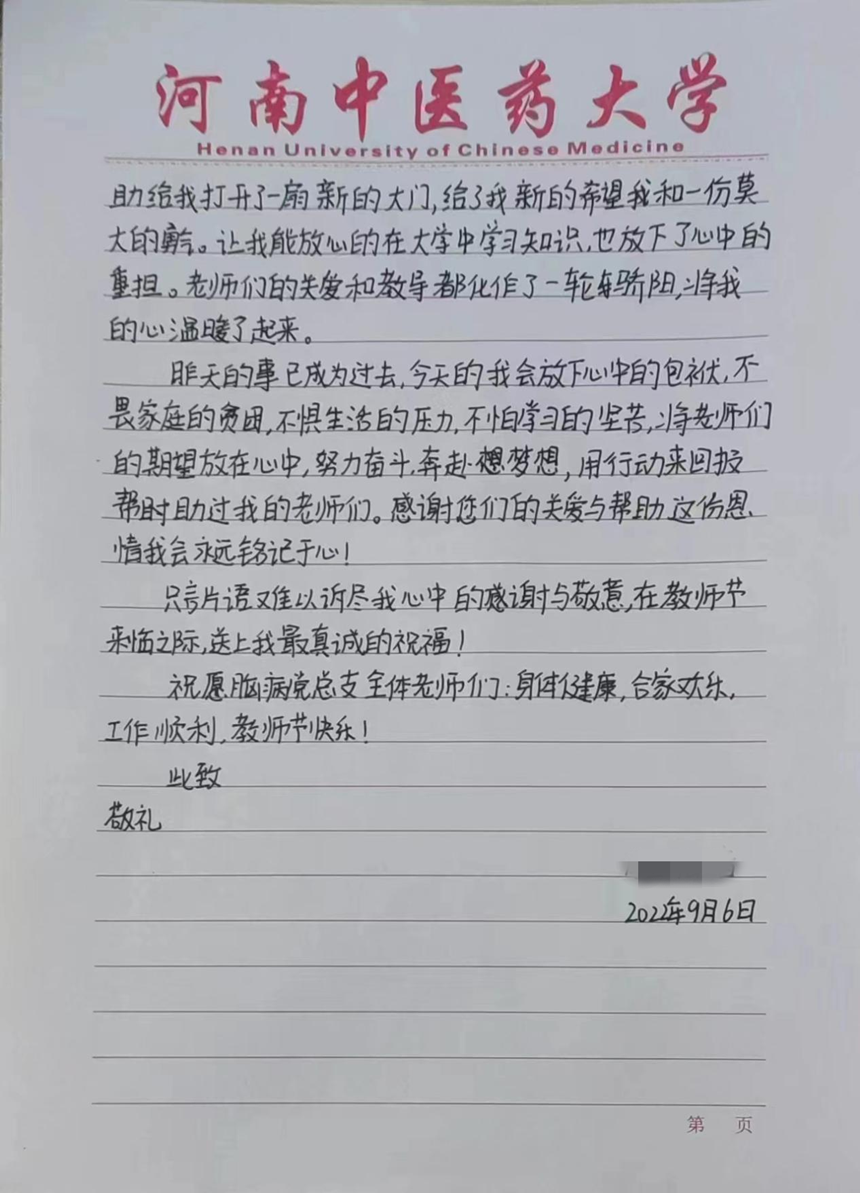 河南中医药大学
Henan University of Chinese Medicine
助给我打开了一扇新的大门,给了我新的希望我和一份莫
大的勇气。让我能放心的在大学中学习知识,也放下了心中的
重担。老师们的关爱和教导都化作了一轮骄阳,将我
的心温暖了起来。
昨天的事已成为过去,今天的我会放下心中的包袱,不
畏家庭的贫困,不惧生活的压力,不怕学习的坚苦,将老师们
的期望放在心中,努力奋斗,奔赴梦想,用行动来回报
帮助过我的老师们。感谢您们的关爱与帮助,这份恩
情我会永远铭记于心!
只言片语难以诉尽我心中的感谢与敬意,在教师节
来临之际,送上我最真诚的祝福!
祝愿脑病党总支全体老师们:身体健康,合家欢乐,
工作顺利,教师节快乐!
此致
敬礼
2022年9月6日
第 页